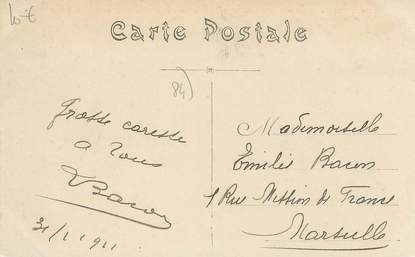 Lot
Carte Postale
84)
Grosse caresse
à Tous
VBacon
31/1/1911
Mademoiselle
Emilie Bacon
1 Rue Mission de France
Marseille